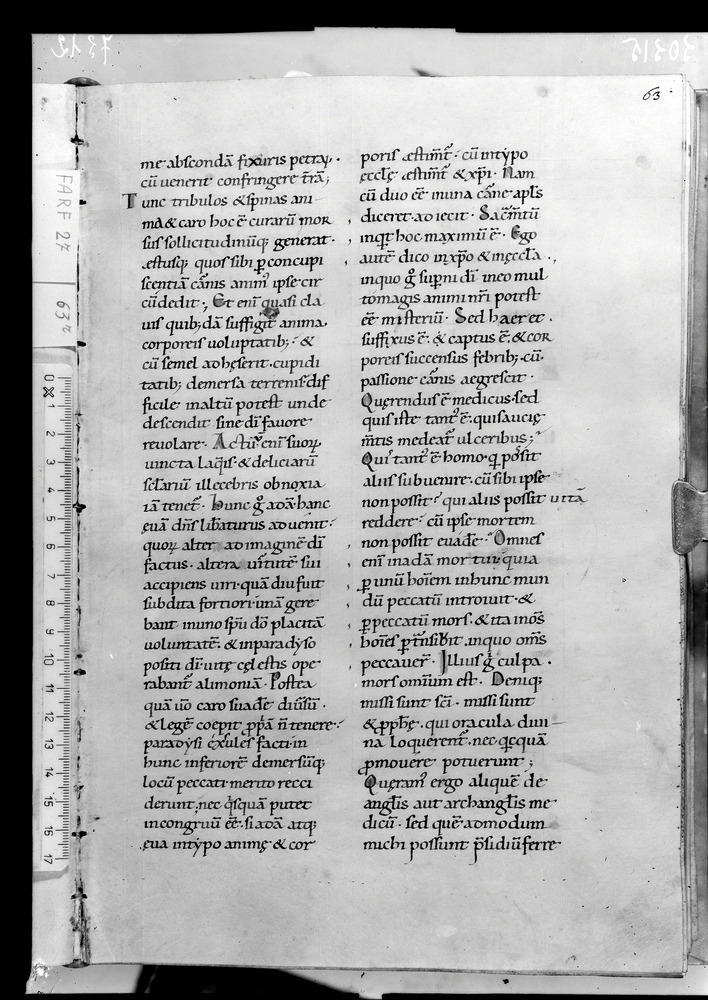 63
me abscondā fixuris petraꝝ.
cū uenerit confringere t̄rā;
Tunc tribulos & spinas ani
ma & caro hoc ē curarū mor
sus sollicitudinūq; generat.
æstusq; quos sibi ꝑ concupi
scentiā car̄nis anim̄ ipse cir
cūdedit; Et enī quasi cla
uis quib;dā suffigit anima
corporeis uoluptatib; &
cū semel adhęserit cupidi
tatib; demersa terrenis dif
ficile inaltū potest unde
descendit sine dī fauore
reuolare. Actuū enī suoꝝ
uincta laq̄is & deliciarū
sclariū illecebris obnoxia
iā tenet᷑. Hunc g̊ adā hanc
euā dn̄s lib̄aturus aduenit.
quoꝝ alter ad imaginē dī
factus. altera uirtutē sui
accipiens uiri quā diu fuit
subdita fortiori unā gere
bant in uno sp̄u dō placitā
uoluntatē. & in paradyso
positi dī uitę cęlestis ope
rabant᷑ alimoniā. Postea
quā ūo caro suadē diūsū.
& legē coepit ꝓpā n̄ tenere.
paradysi exsules facti in
hunc inferiorē demersūq;
locū peccati merito recci
derunt, nec q̄squā putet
incongruū eē. si adā atq;
eua in typo animę & cor
poris æstimet᷑. cū in typo
ęcclę æstimet᷑ & xp̄i. Nam
cū duo eē in una car̄ne ap̄ls
diceret adiecit. Sacm̄tū
inq̄t hoc maximū ē. Ego
autē dico in xp̄o & in ęccl̄a.,
inquo g̊ sup̄ni dī in eo mul
to magis animi nr̄i potest
eē misteriū. Sed haeret.
suffixus ē. & captus ē. & cor
poreis succensus febrib; cū
passione car̄nis aegrescit.
Quęrendus ē medicus. sed
quis iste tant᷑ ē. qui saucię
m̄tis medeat᷑ ulceribus;
Qui tant᷑ ē homo. q̄ possit
aliis subuenire. cū sibi ipse
non possit? qui aliis possit uitā
reddere? cū ipse mortem
non possit euadē? Omnes
enī in adā mortui. quia
ꝑ unū hoīem in hunc mun
dū peccatū introiuit. &
ꝑ peccatū mors. & ita in os̄
hoīes ꝑtn̄sibit. in quo om̄s
peccauer᷑. Illius g̊ culpa.
mors omnium est. Deniq;
missi sunt sc̄i. missi sunt
& ꝓph̄ę. qui oracula diui
na loquerent᷑. nec q̄cquā
ꝓmouere potuerunt;
Quęram᷑ ergo aliquē de
angl̄is aut archangl̄is me
dicū. sed quē admodum
michi possunt p̄sidiū ferre
FARF 27
63r
0 1 2 3 4 5 6 7 8 9 10 11 12 13 14 15 16 17